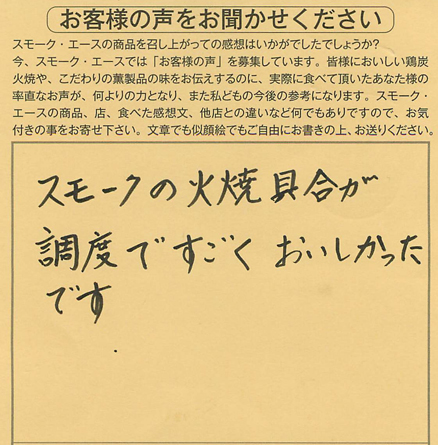 お客様の声をお聞かせください
スモーク・エースの商品を召し上がっての感想はいかがでしたでしょうか?
今、スモーク・エースでは「お客様の声」を募集しています。皆様においしい鶏炭
火焼や、こだわりの薫製品の味をお伝えするのに、実際に食べて頂いたあなた様の
率直なお声が、何よりの力となり、また私どもの今後の参考になります。スモーク・
エースの商品、店、食べた感想文、他店との違いなど何でもありですので、お気
付きの事をお寄せ下さい。文章でも似顔絵でもご自由にお書きの上、お送りください。
スモークの火焼具合が
調度ですごくおいしかった
です